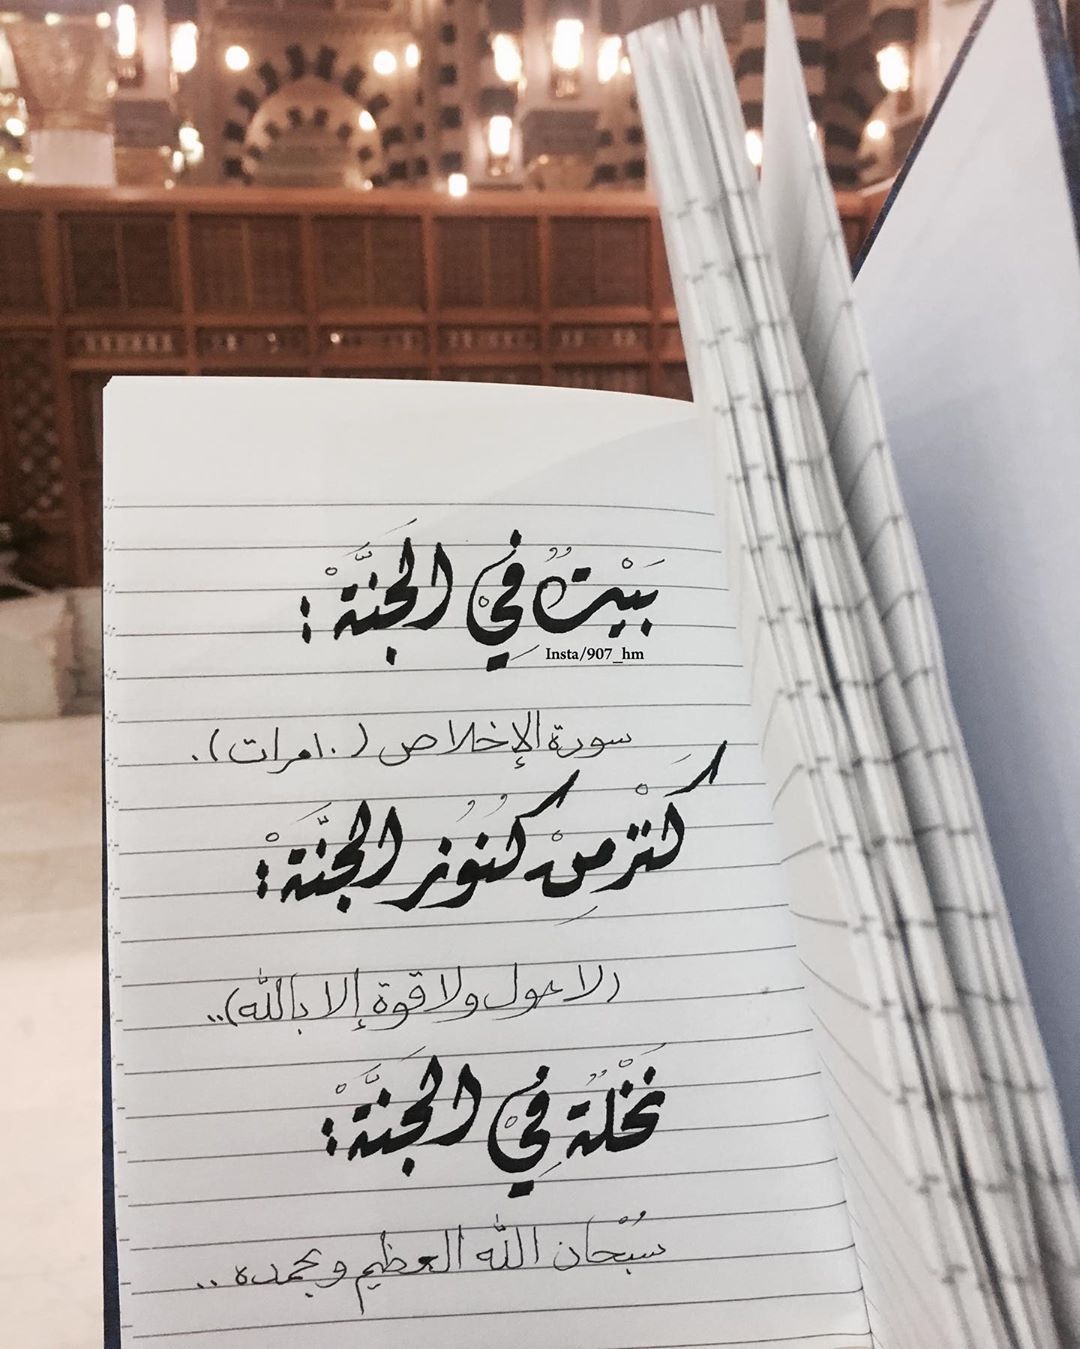 بَيْتٌ فِيْ الجَنَّةْ :
Insta/907_hm
سورة الإخلاص (١٠مرات).
كَنْز مِنْ كُنُوز الجَنَّةْ :
(لا حول ولا قوة إلا بالله)..
نَخْلَةٌ فِيْ الجَنَّةْ :
سُبْحان الله العظيم وبحمده ..